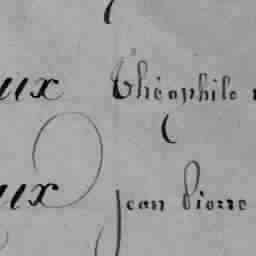 ux Théophile
ux Jean Pierre